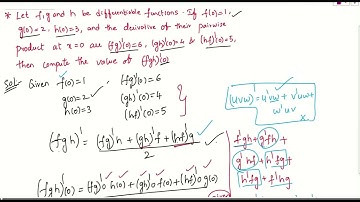 * Let f,g and h be differentiable functions. If f(0)=1,
g(0)=2, h(0)=3, and the derivative of their pairwise
product at x=0 are (fg)'(0)=6, (gh)'(0)=4 & (hf)'(0)=5,
then compute the value of (fgh)'(0)
Sol Given f(0)=1 (fg)'(0)=6
g(0)=2 (gh)'(0)=4
h(0)=3 (hf)'(0)=5
(uvw)' = u'vw + v'uw +
w'uv
(fgh)' = (fg)'h + (gh)'f + (hf)'g
2
f'gh + g'fh +
g'hf + h'fg +
h'fg + f'hg
(fgh)'(0) = (fg)'0 h(0) + (gh)'0 f(0) + (hf)'0 g(0)
given